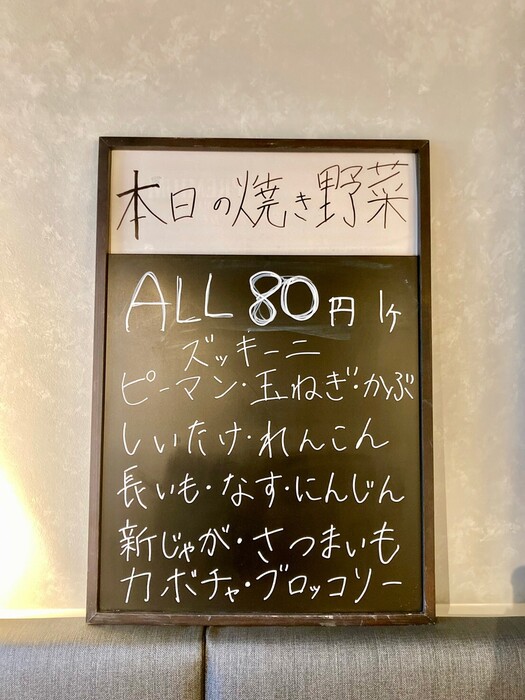 本日の焼き野菜
ALL 80円 1ヶ
ズッキーニ
ピーマン・玉ねぎ・かぶ
しいたけ・れんこん
長いも・なす・にんじん
新じゃが・さつまいも
カボチャ・ブロッコリー